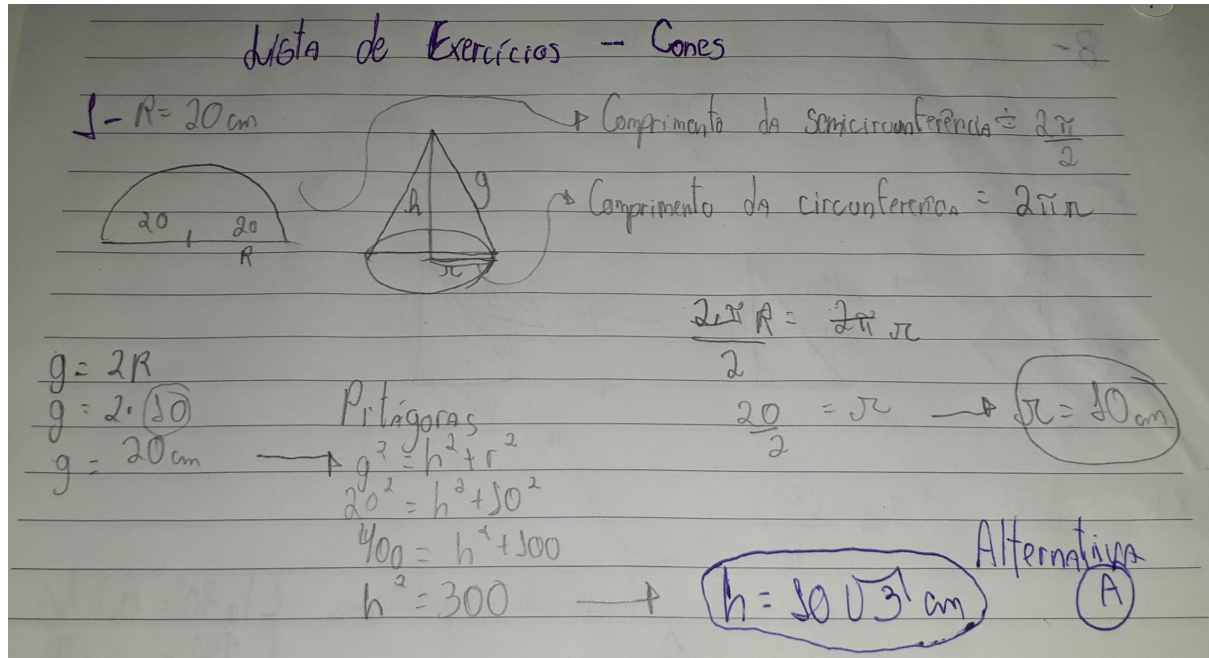 Lista de Exercícios - Cones
1- R= 20 cm
Comprimento da semicircunferência = 2π/2
20 20
R
h g
r
Comprimento da circunferencia = 2πr
2.πR/2 = 2π r
20/2 = r → r = 10 cm
g = 2R
g = 2.10
g = 20 cm →
Pitágoras
g² = h² + r²
20² = h² + 10²
400 = h² + 100
h² = 300 → h = 10√3 cm
Alternativa
A